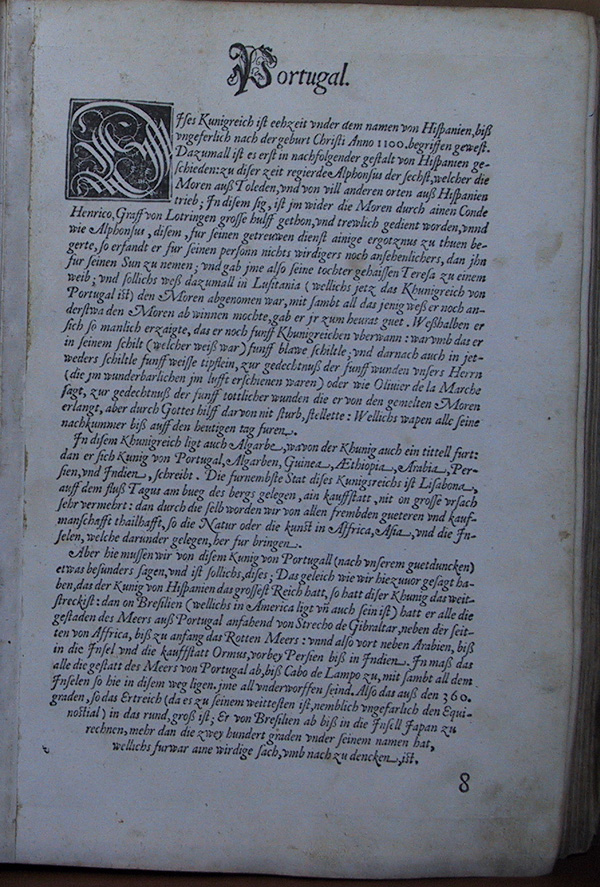 Portugal.
DIses Kunigreich ist eehzeit vnder dem namen von Hispanien, biß
vngeferlich nach der geburt Christi Anno 1100. begriffen gewest.
Dazumall ist es erst in nachfolgender gestalt von Hispanien ge-
schieden: zu diser zeit regierde Alphonsus der sechst, welcher die
Moren auß Toleden, vnd von vill anderen orten auß Hispanien
trieb; Jn disem sig, ist jm wider die Moren durch ainen Conde
Henrico, Graff von Lotringen grosse hulff gethon, vnd trewlich gedient worden, vnnd
wie Alphonsus, disem, fur seinen getreuwen dienst ainige ergotznus zu thuen be-
gerte, so erfandt er fur seinen personn nichts wirdigers noch ansehenlichers, dan jhn
fur seinen Sun zu nemen; vnd gab jme also seine tochter gehaissen Teresa zu einem
weib; vnd sollichs weß dazumall in Lusitania (wellichs jetz das Khunigreich von
Portugal ist) den Moren abgenomen war, mit sambt all das jenig weß er noch an-
derstwa den Moren ab winnen mochte, gab er jr zum heurat guet. Weßhalben er
sich so manlich erzaigte, das er noch funff Khunigreichen vberwann: warvmb das er
in seinem schilt (welcher weiß war) funff blawe schiltle, vnd darnach auch in jet-
weders schiltle funff weisse tipflein, zur gedechtnuß der funff wunden vnsers Herrn
(die jm wunderbarlichen jm lufft erschienen waren) oder wie Oliuier de la Marche
sagt, zur gedechtnuß der funff tottlicher wunden die er von den gemelten Moren
erlangt, aber durch Gottes hilff darvon nit sturb, stellette: Wellichs wapen alle seine
nachkummer biß auff den heutigen tag furen.
Jn disem Khunigreich ligt auch Algarbe, wavon der Khunig auch ein tittell fiurt:
dan er sich Kunig von Portugal, Algarben, Guinea, Æthiopia, Arabia, Per-
sien, vnd Jndien, schreibt. Die furnembste Stat dises Kunigsreichs ist Lisabona,
auff dem fluß Tagus am bueg des bergs gelegen, ain kauffstatt, nit on grosse vrsach
sehr vermehrt: dan durch die selb worden wir von allen frembden gueteren vnd kauf-
manschafft thailhafft, so die Natur oder die kunst in Affrica, Asia, vnd die Jn-
selen, welche darunder gelegen, her fur bringen.
Aber hie mussen wir von disem Kunig von Portugall (nach vnserem guetduncken)
etwas besunders sagen, vnd ist sollichs, dises; Das geleich wie wir hiezuuor gesagt ha-
ben, das der Kunig von Hispanien das grossest Reich hatt, so hatt diser Khunig das weit-
streckist: dan on Bresilien (wellichs in America ligt vñ auch sein ist) hatt er alle die
gestaden des Meers auß Portugal anfahend von Strecho de Gibraltar, neben der seit-
ten von Affrica, biß zu anfang das Rotten Meers: vnnd also vort neben Arabien, biß
in die Jnsel vnd die kauffstatt Ormus, vorbey Persien biß in Jndien. Jn maß das
alle die gestatt des Meers von Portugal ab, biß Cabo de Lampo zu, mit sambt all dem
Jnselen so hie in disem weg ligen. jme all vnderworffen seind. Also das auß den 360.
graden, so das Ertreich (da es zu seinem weittesten ist, nemblich vngefarlich den Equi-
noctial) in das rund, groß ist; Er von Bresilien ab biß in die Jnsell Japan zu
rechnen, mehr dan die zwey hundert graden vnder seinem namen hat,
wellichs furwar aine wirdige sach, vmb nach zu dencken, ist.
8